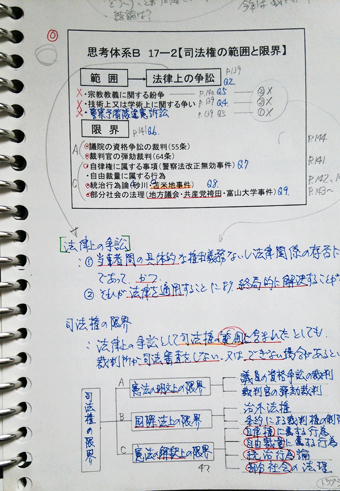 思考体系B 17-2【司法権の範囲と限界】
範囲 → 法律上の争訟 P.139
Q2
×・宗教教義に関する紛争 Q5 ②×
×・技術上又は学術上に関する争い P.139 Q4 ②×
×・警察予備隊違憲訴訟 Q3 ①×
限界 P.141 Q6
A ・議院の資格争訟の裁判(55条)
・裁判官の弾劾裁判(64条)
・自律権に属する事項(警察法改正無効事件) Q7 P.141
・自由裁量に属する行為
C ・統治行為論(砂川・苫米地事件) Q8
・部分社会の法理(地方議会・共産党袴田・富山大学事件) Q9
P.144
[法律上の争訟]
:① 当事者間の具体的な権利義務ないし法律関係の存否に
であって、かつ、
② それが法律を適用することにより終局的に解決すること
司法権の限界
:法律上の争訟として司法権の範囲に含まれたとしても、
裁判所が司法審査をしない、又は、できない場合があるという
司法権の限界
A 憲法の明文上の限界
議員の資格争訟の裁判
裁判官の弾劾裁判
B 国際法上の限界
治外法権
条約による裁判権の制
C 憲法の解釈上の限界
自律権に属する行為
自由裁量に属する行為
統治行為論
部分社会の法理
47